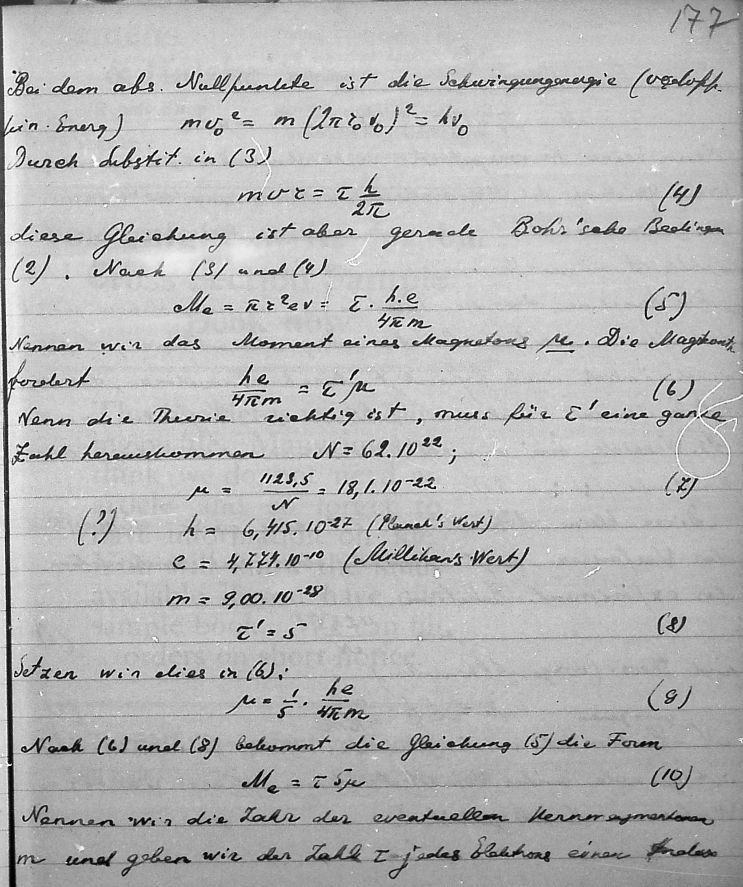 177
Bei dem abs. Nullpunkte ist die Schwingungsenergie
kin. Energ) mv₀² = m (2πr₀ν₀)² = hν₀
Durch Substit. in (3)
mvr = τ h/2π (4)
diese Gleichung ist aber gerade Bohr'sche Bedingn
(2). Nach (3) und (4)
Me = πr²eν = τ · h.e/4πm (5)
Nennen wir das Moment eines Magnetons μ. Die
fordert he/4πm = τ'μ (6)
Wenn die Theorie richtig ist, muss für τ' eine ganze
Zahl herauskommen N = 62.10²²;
μ = 1123,5/N = 18,1.10⁻²² (7)
(?) h = 6,415.10⁻²⁷ (Planck's Wert)
e = 4,774.10⁻¹⁰ (Millikans Wert)
m = 9,00.10⁻²⁸
τ' = 5 (8)
Setzen wir dies in (6);
μ = 1/5 · he/4πm (9)
Nach (6) und (8) bekommt die Gleichung (5) die Form
Me = τ5μ (10)
Nennen wir die Zahr der eventuellen
m und geben wir der Zahl τ jedes Elektrons einen Index